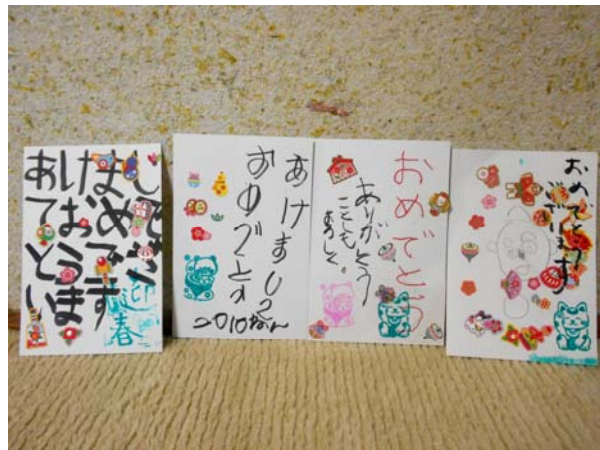 あけまし
ておめで
とうござ
います
迎春
あけまして
おめでとう
2010ねん
おめでとう
ありがとう
ことしも
よろしく。
おめでとう
ございます